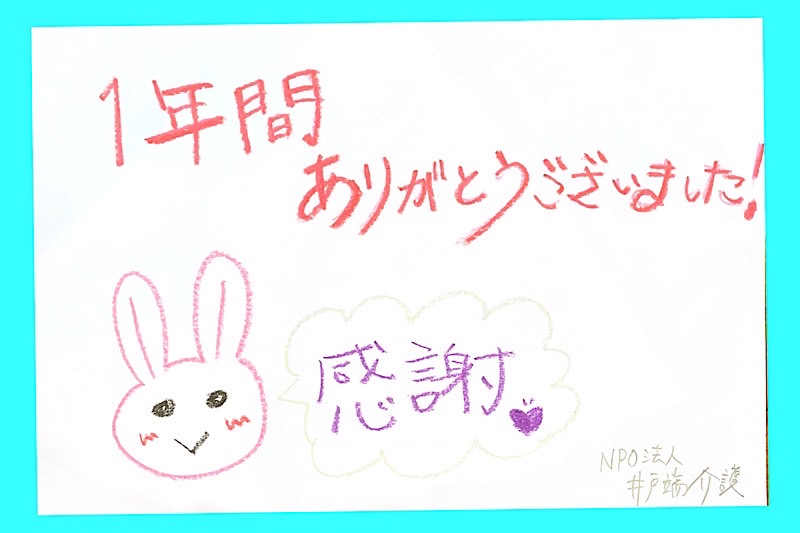 1年間
ありがとうございました!
感謝
NPO法人
井戸端介護